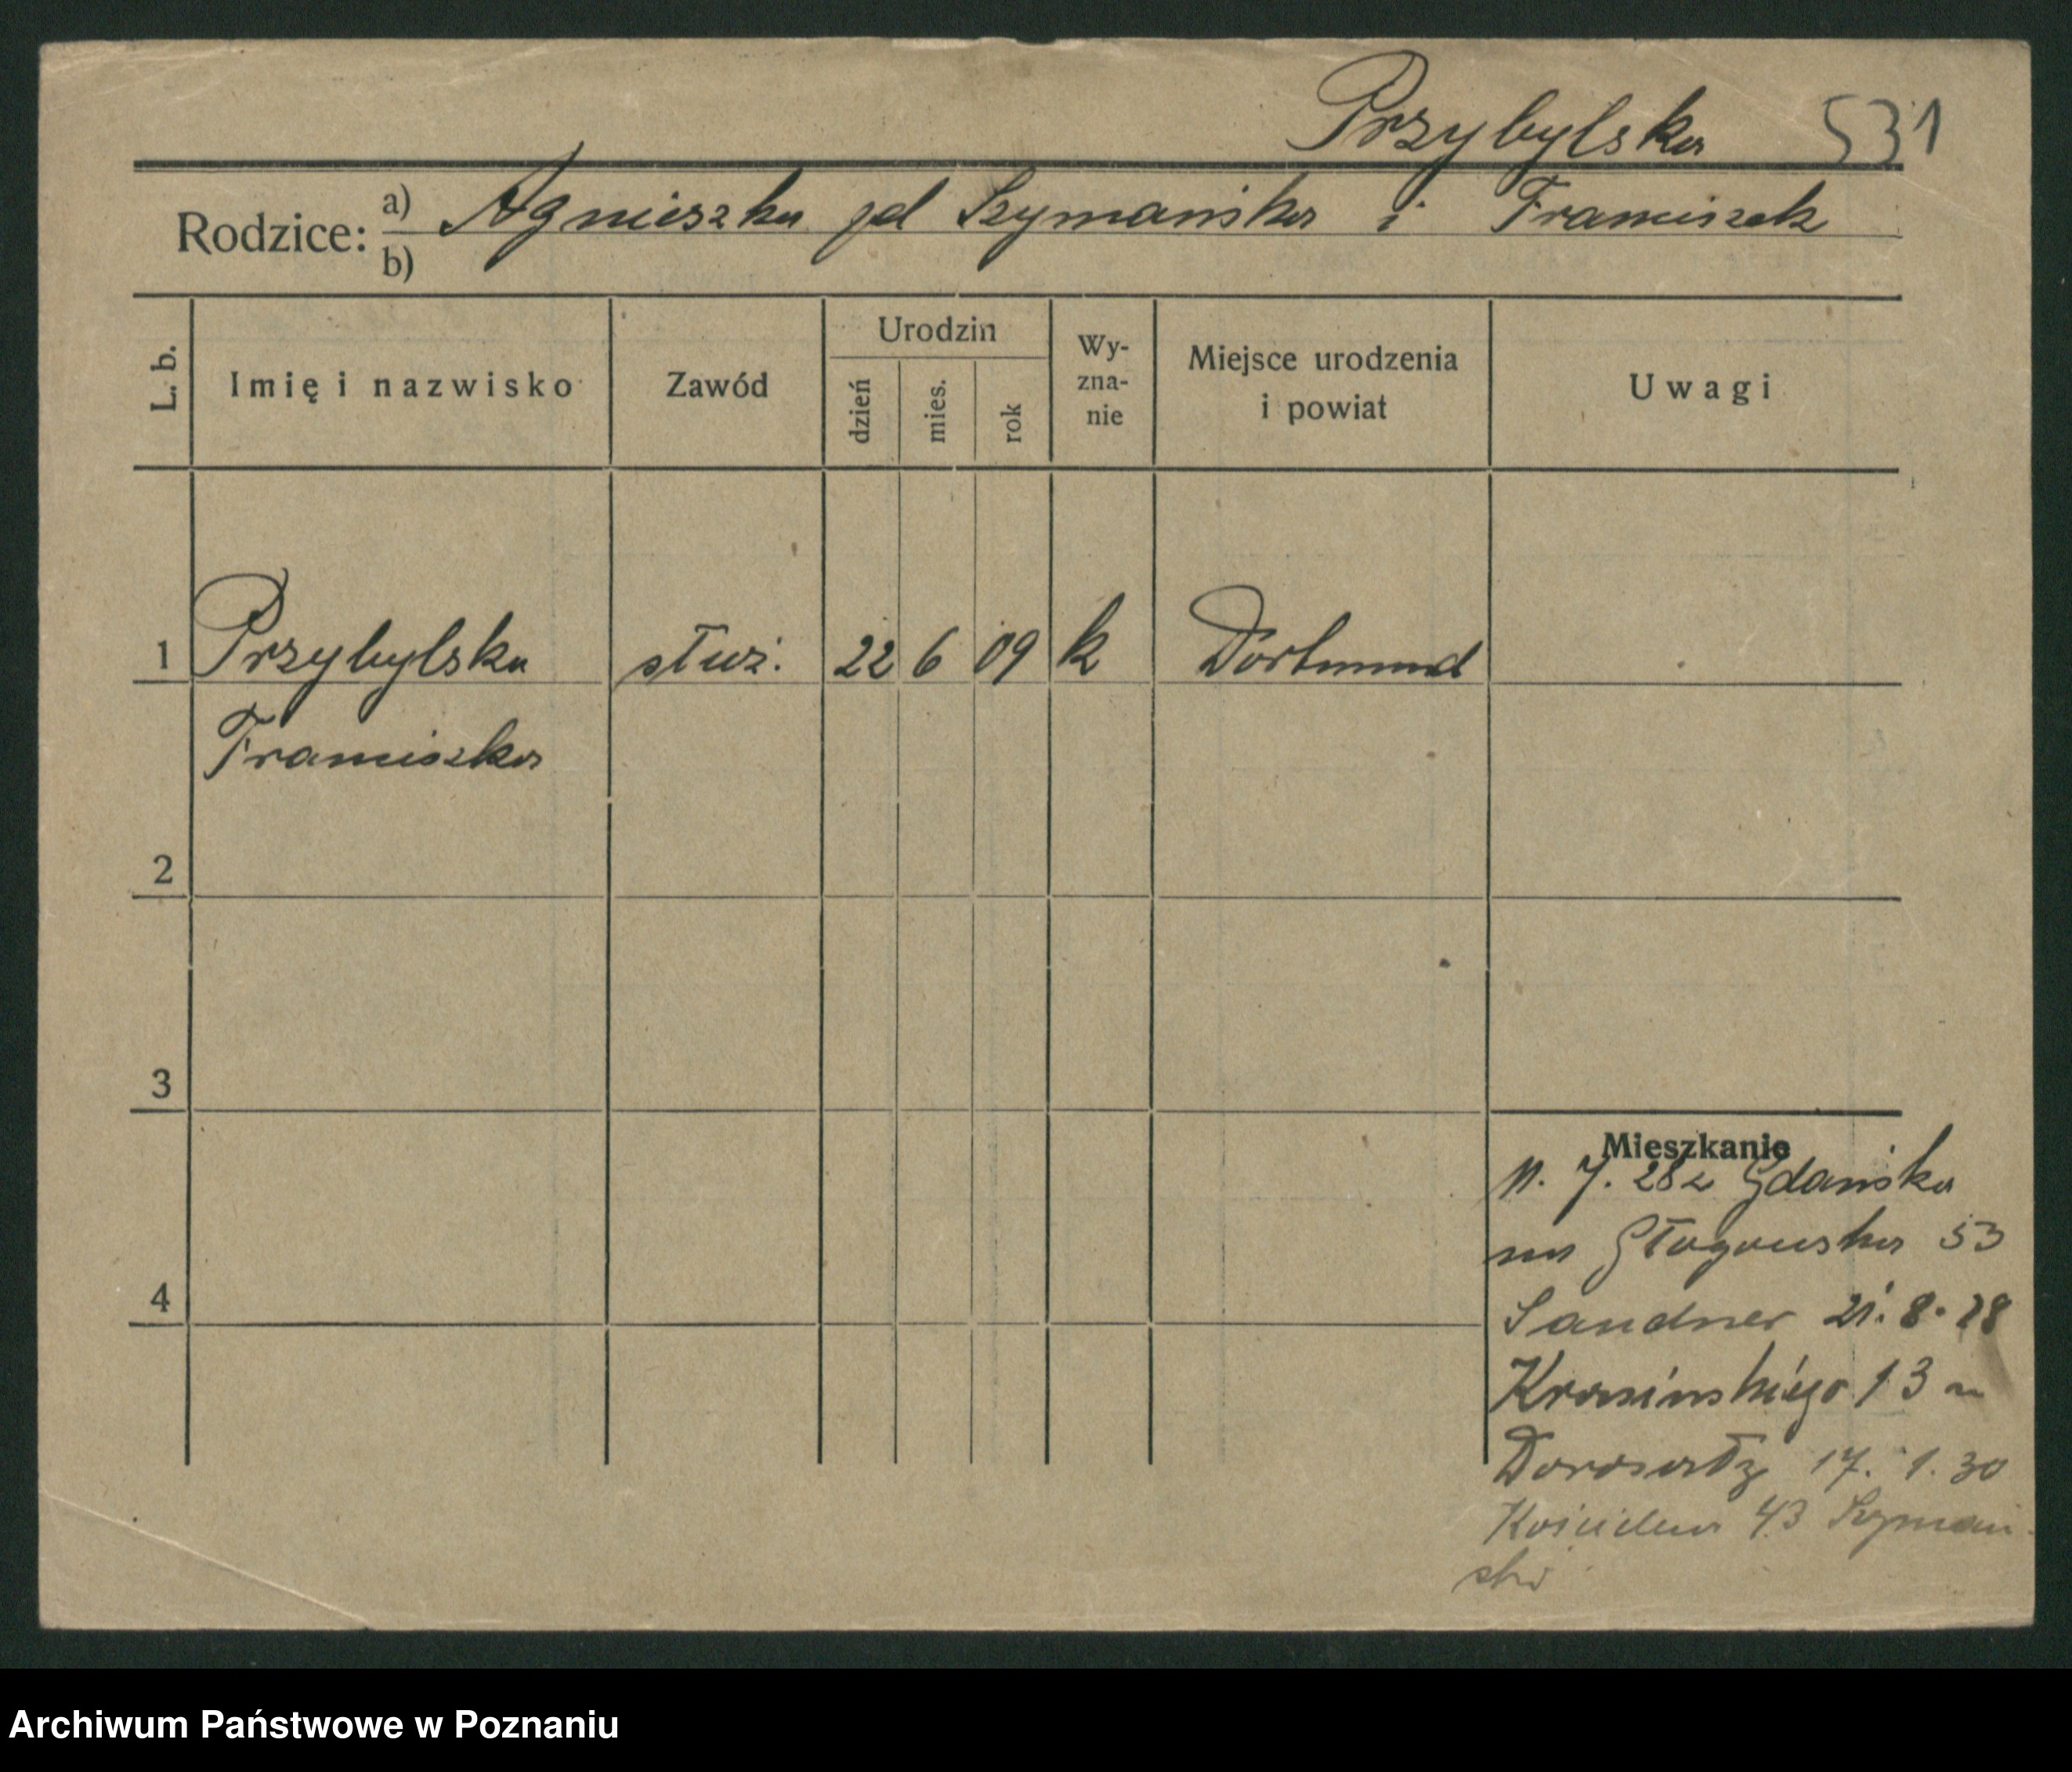 Przybylska 531
Rodzice: a) Agnieszka zd Szymańska i Franciszek
b)
L. b.
Imię i nazwisko
Zawód
Urodzin
dzień
mies.
rok
Wy-
zna-
nie
Miejsce urodzenia
i powiat
Uwagi
1 Przybylska służ. 22 6 09 k Dortmund
Franciszka
2
3
4
Mieszkanie
11. 7. 28 z Gdańska
na Głogowska 53
Sandner 21. 8. 28
Krasińskiego 13
17. 1. 30
43 Szymań-
ski
Archiwum Państwowe w Poznaniu